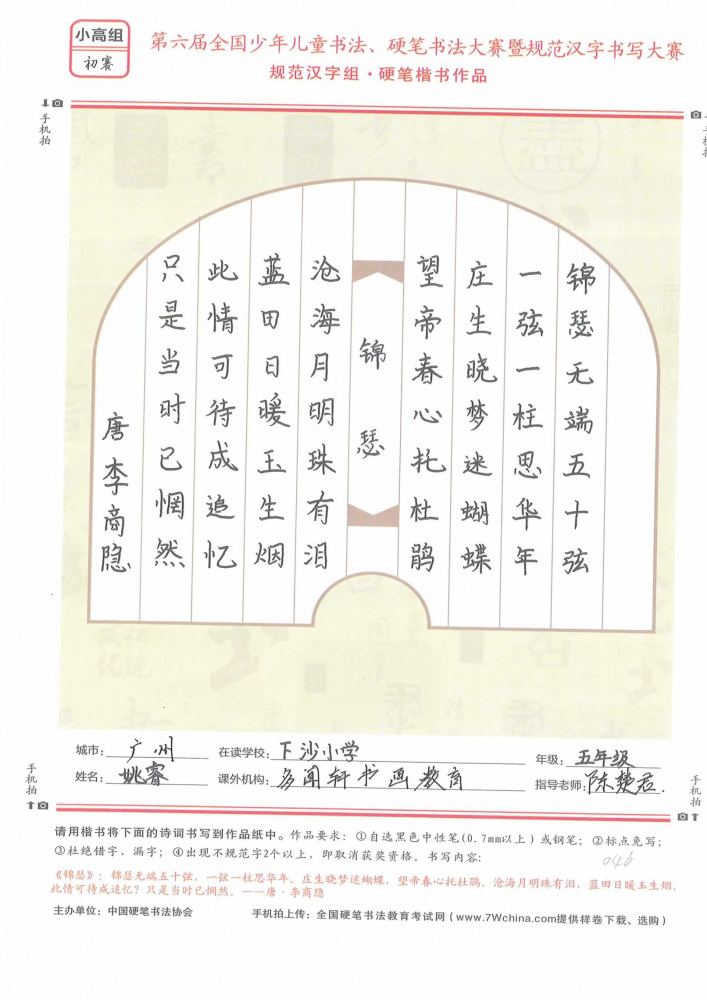 小高组
初赛
第六届全国少年儿童书法、硬笔书法大赛暨规范汉字书写大赛
规范汉字组·硬笔楷书作品
手机拍
手机拍
锦瑟无端五十弦
一弦一柱思华年
庄生晓梦迷蝴蝶
望帝春心托杜鹃
锦瑟
沧海月明珠有泪
蓝田日暖玉生烟
此情可待成追忆
只是当时已惘然
唐李商隐
城市：广州 在读学校：下沙小学 年级：五年级
姓名：姚睿 课外机构：多闻轩书画教育 指导老师：陈楚君.
手机拍
手机拍
请用楷书将下面的诗词书写到作品纸中。作品要求：①自选黑色中性笔(0.7mm以上）或钢笔；②标点免写；
③杜绝错字、漏字；④出现不规范字2个以上，即取消获奖资格。书写内容：
046
《锦瑟》：锦瑟无端五十弦，一弦一柱思华年。庄生晓梦迷蝴蝶，望帝春心托杜鹃。沧海月明珠有泪，蓝田日暖玉生烟。
此情可待成追忆？只是当时已惘然。——唐·李商隐
主办单位：中国硬笔书法协会 手机拍上传：全国硬笔书法教育考试网（www.7Wchina.com提供样卷下载、选购）